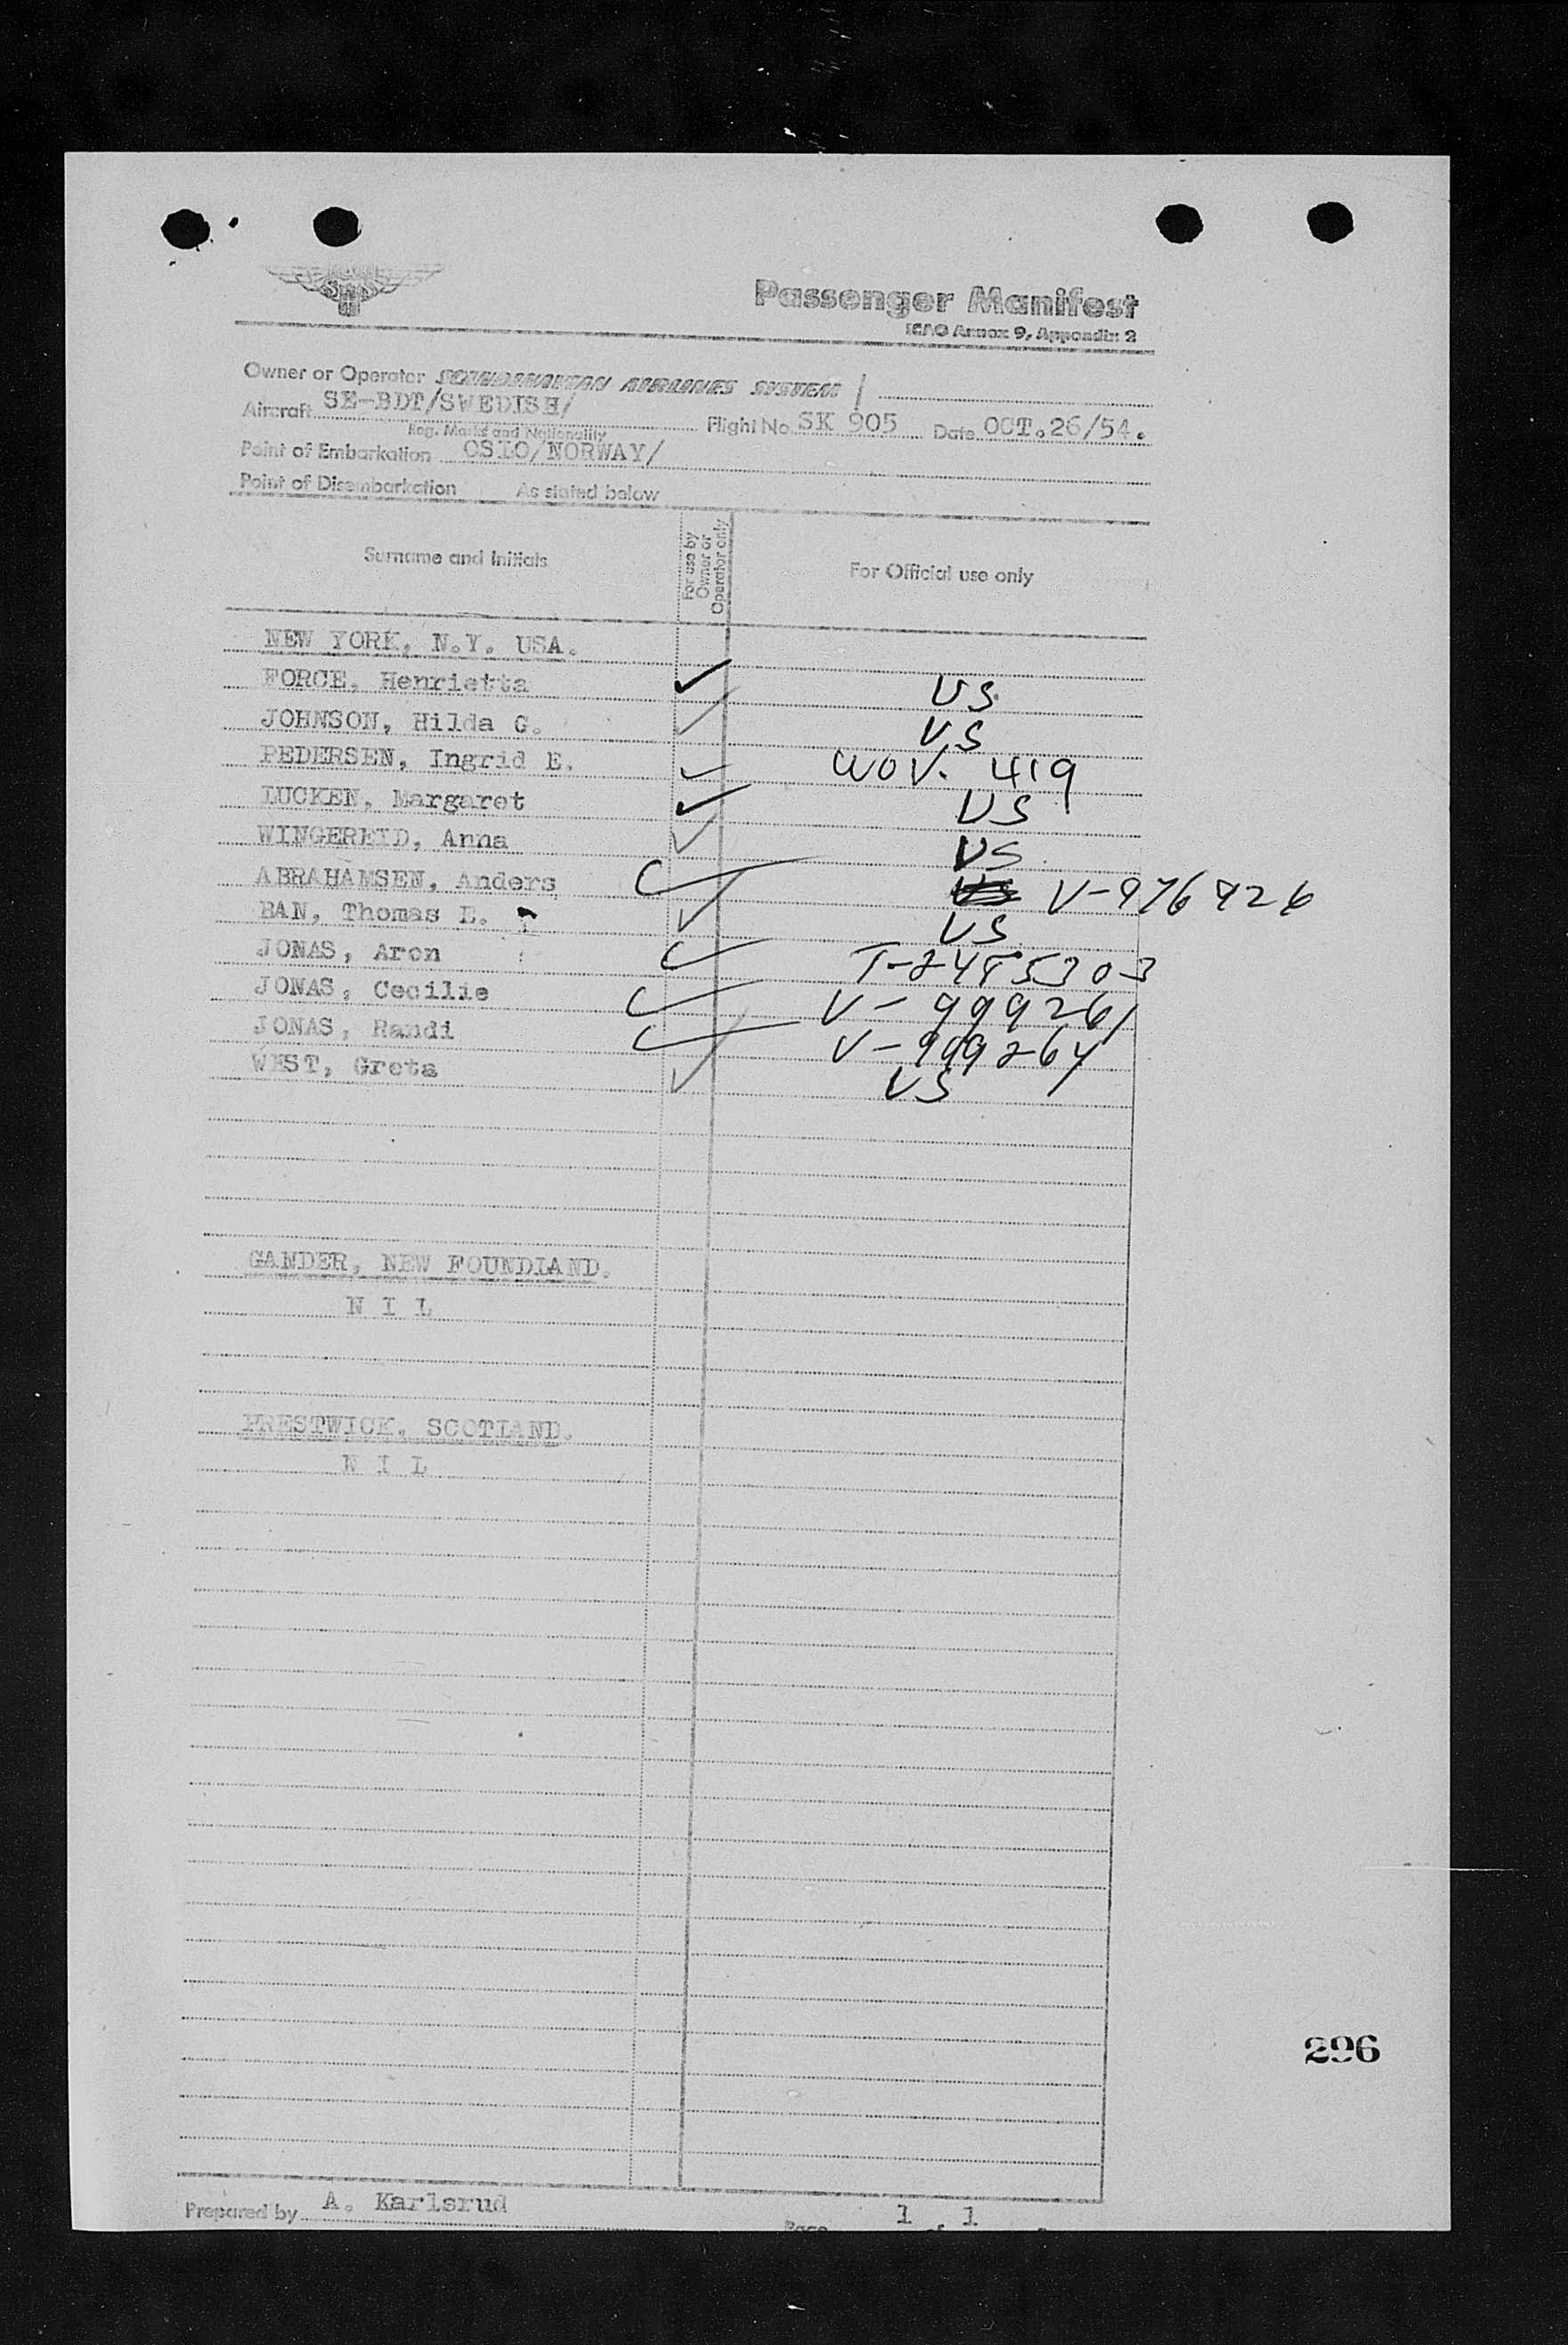 SAS
Passenger Manifest
ICAO Annex 9, Appendix 2
Owner or Operator SCANDINAVIAN AIRLINES SYSTEM /
Aircraft SE-BDT/SWEDISH/ Flight No. SK 905 Date OCT.26/54.
Reg. Marks and Nationality
Point of Embarkation OSLO/NORWAY/
Point of Disembarkation As stated below
Surname and Initials For use by Owner or Operator only For Official use only
NEW YORK, N.Y. USA.
FORCE, Henrietta ✓ US
JOHNSON, Hilda G. ✓ US
PEDERSEN, Ingrid E. ✓ WOV. 419
LUCKEN, Margaret ✓ US
WINGEREID, Anna ✓ US
ABRAHAMSEN, Anders ✓ V-976926
BAN, Thomas L. ✓ US
JONAS, Aron ✓ T-2485303
JONAS, Cecilie ✓ V-999261
JONAS, Randi ✓ V-999264
WEST, Greta ✓ US
GANDER, NEW FOUNDLAND.
N I L
PRESTWICK, SCOTLAND.
N I L
296
Prepared by A. Karlsrud Page 1 of 1